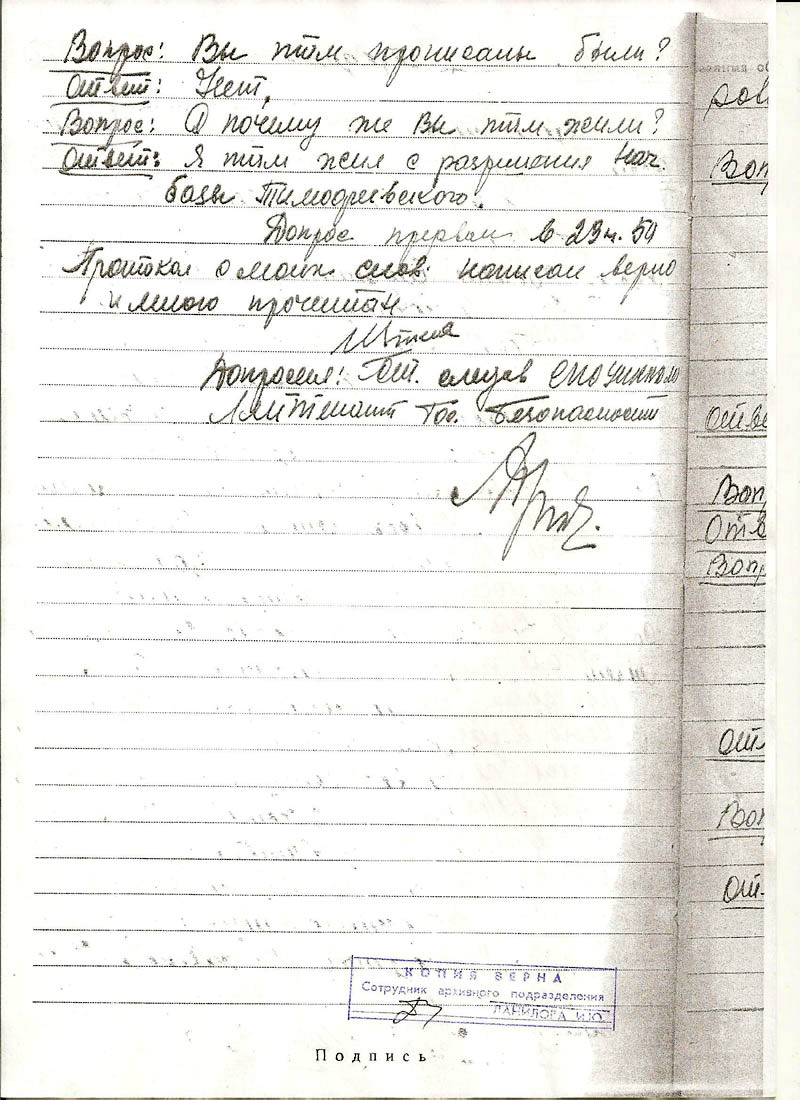 Вопрос: Вы там прописаны были?
Ответ: Нет.
Вопрос: А почему же Вы там жили?
Ответ: Я там жил с разрешения нач.
базы Тимофеевского.
Допрос прерван в 23 ч. 50
Протокол с моих слов написан верно
и мною прочитан
Допросил: следов
Лейтенант Гос. Безопасности
КОПИЯ ВЕРНА
Сотрудник архивного подразделения
ДАНИЛОВА И.Ю.
Подпись
Воп
Отве
Воп
Отв
Воп
От
Воп
От